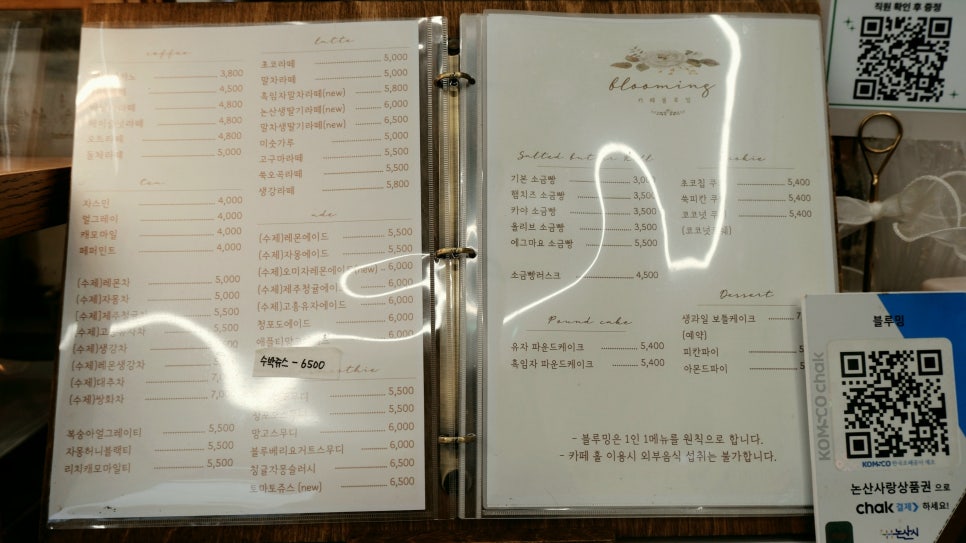 coffee
3,800
4,500
4,800
4,800
오트라떼 4,800
돌체라떼 5,000
tea
자스민 4,000
얼그레이 4,000
캐모마일 4,000
페퍼민트 4,000
(수제)레몬차 5,000
(수제)자몽차 5,000
(수제)제주청귤차
(수제)생강차
(수제)레몬생강차
(수제)대추차
(수제)쌍화차
복숭아얼그레이티 5,500
자몽허니블랙티 5,500
리치캐모마일티 5,500
latte
초코라떼 5,000
말차라떼 5,000
흑임자말차라떼(new) 5,800
논산생딸기라떼(new) 6,000
말차생딸기라떼(new) 6,500
미숫가루 5,000
고구마라떼 5,500
쑥오곡라떼 5,500
생강라떼 5,800
ade
(수제)레몬에이드 5,500
(수제)자몽에이드 5,500
(수제)오미자레몬에이드(new) 6,000
(수제)제주청귤에이드 6,000
(수제)고흥유자에이드 6,000
청포도에이드 6,000
6,000
수박쥬스 - 6500
5,500
5,500
망고스무디 6,000
블루베리요거트스무디 6,000
청귤자몽슬러시 6,500
토마토쥬스 (new) 6,500
blooming
카페블루밍
Salted butter Roll
기본 소금빵 3,000
햄치즈 소금빵 3,500
카야 소금빵 3,500
올리브 소금빵 3,500
에그마요 소금빵 5,500
소금빵러스크 4,500
Pound cake
유자 파운드케이크 5,400
흑임자 파운드케이크 5,400
초코칩 5,400
쑥피칸 5,400
코코넛 5,400
Dessert
생과일 보틀케이크
(예약)
피칸파이
아몬드파이
- 블루밍은 1인 1메뉴를 원칙으로 합니다.
- 카페 홀 이용시 외부음식 섭취는 불가합니다.
직원 확인 후 증정
블루밍
KOMSCO chak
KOMSCO 한국조폐공사 제조
논산사랑상품권 으로
chak 결제 하세요!
논산시